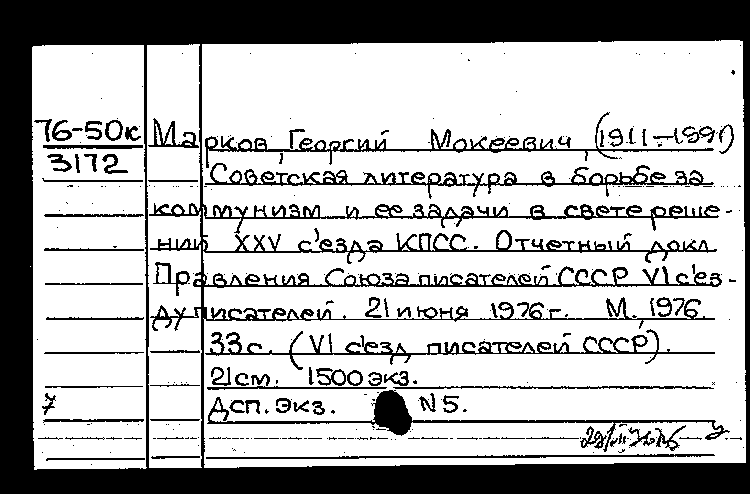 76-50к Марков, Георгий Мокеевич, (1911-1991)
3172 Советская литература в борьбе за
коммунизм и ее задачи в свете реше-
ний XXV с'езда КПСС. Отчетный докл.
Правления Союза писателей СССР VI с'ез-
ду писателей. 21 июня 1976г. М., 1976.
33с. (VI с'езд писателей СССР).
21см. 1500 экз.
7 Дсп. Экз. N5.